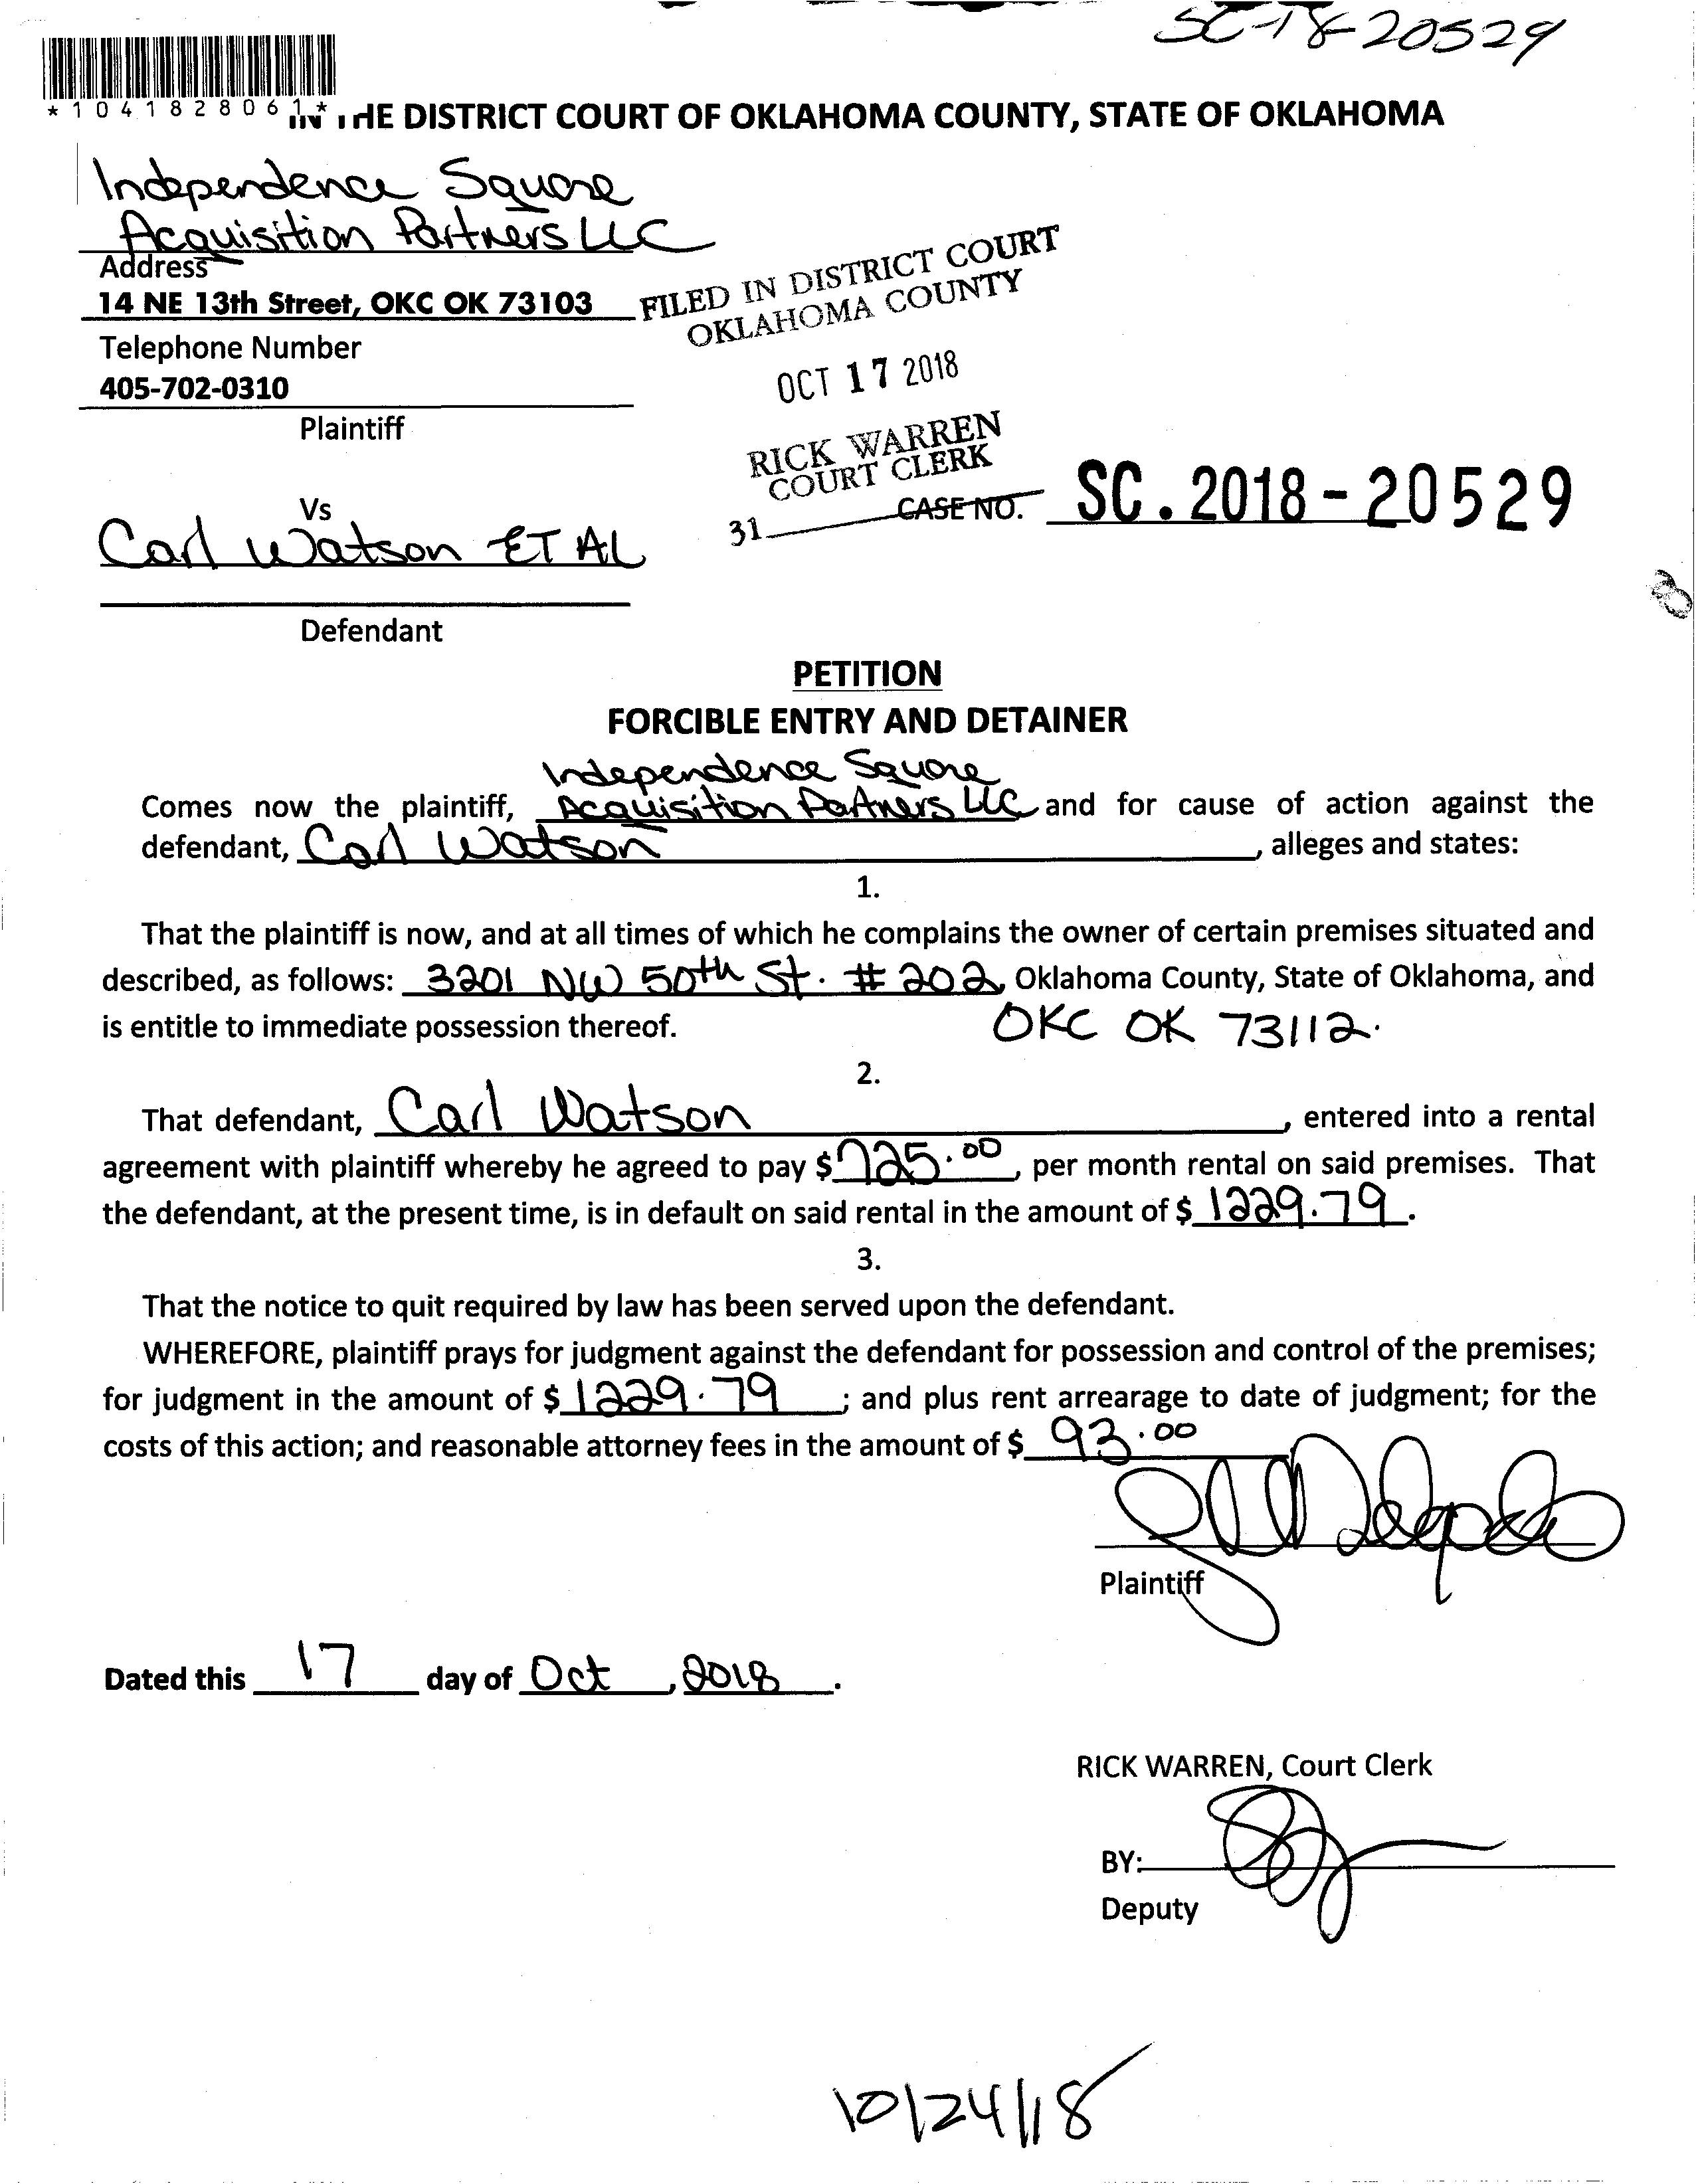 SC-18-20529
*1041828061*
IN THE DISTRICT COURT OF OKLAHOMA COUNTY, STATE OF OKLAHOMA
Independence Square
Acquisition Partners LLC
Address
14 NE 13th Street, OKC OK 73103
Telephone Number
405-702-0310
Plaintiff
FILED IN DISTRICT COURT
OKLAHOMA COUNTY
OCT 17 2018
RICK WARREN
COURT CLERK
31
CASE NO. SC.2018-20529
Vs
Carl Watson ET AL
Defendant
PETITION
FORCIBLE ENTRY AND DETAINER
Independence Square
Comes now the plaintiff, Acquisition Partners LLC and for cause of action against the
defendant, Carl Watson, alleges and states:
1.
That the plaintiff is now, and at all times of which he complains the owner of certain premises situated and
described, as follows: 3201 NW 50th St. # 202, Oklahoma County, State of Oklahoma, and
is entitle to immediate possession thereof. OKC OK 73112.
2.
That defendant, Carl Watson, entered into a rental
agreement with plaintiff whereby he agreed to pay $725.00, per month rental on said premises. That
the defendant, at the present time, is in default on said rental in the amount of $ 1229.79.
3.
That the notice to quit required by law has been served upon the defendant.
WHEREFORE, plaintiff prays for judgment against the defendant for possession and control of the premises;
for judgment in the amount of $ 1229.79; and plus rent arrearage to date of judgment; for the
costs of this action; and reasonable attorney fees in the amount of $ 93.00
Plaintiff
Dated this 17 day of Oct, 2018.
RICK WARREN, Court Clerk
BY:
Deputy
10/24/18